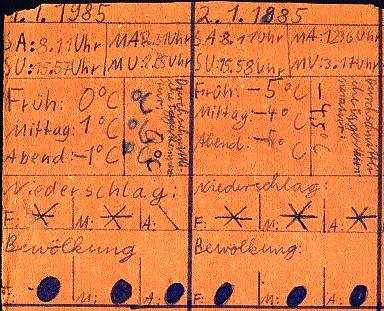 1.1.1985
SA: 8.17 Uhr MA: Uhr
SU: 15.57 Uhr MU: Uhr
Früh: 0°C
Mittag: 1°C
Abend: -1°C
0°C
Niederschlag:
F: M: A:
Bewölkung
F: M: A:
2.1.1985
SA: 8.17 Uhr MA: 1236 Uhr
SU: 15.58 Uhr MU: 3.17 Uhr
Früh: -5°C
Mittag: -4°C
Abend: -5°C
-4,5°C
Niederschlag:
F: M: A:
Bewölkung:
F: M: A: